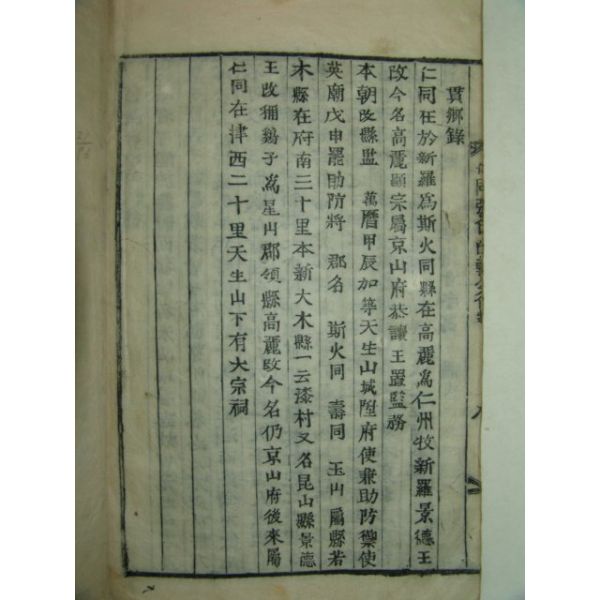 貫鄕錄
仁同在於新羅爲斯火同縣在高麗爲仁州牧新羅景德王
改今名高麗顯宗屬京山府恭讓王置監務
本朝改縣監 萬曆甲辰加等天生山城陞府使兼助防禦使
英廟戊申罷助防將 郡名 斯火同 壽同 玉山 屬縣若
木縣在府南三十里本新大木縣一云漆村又名昆山縣景德
王改㫆鷄子爲星山郡領縣高麗改今名仍京山府後來屬
仁同在津西二十里天生山下有大宗祠